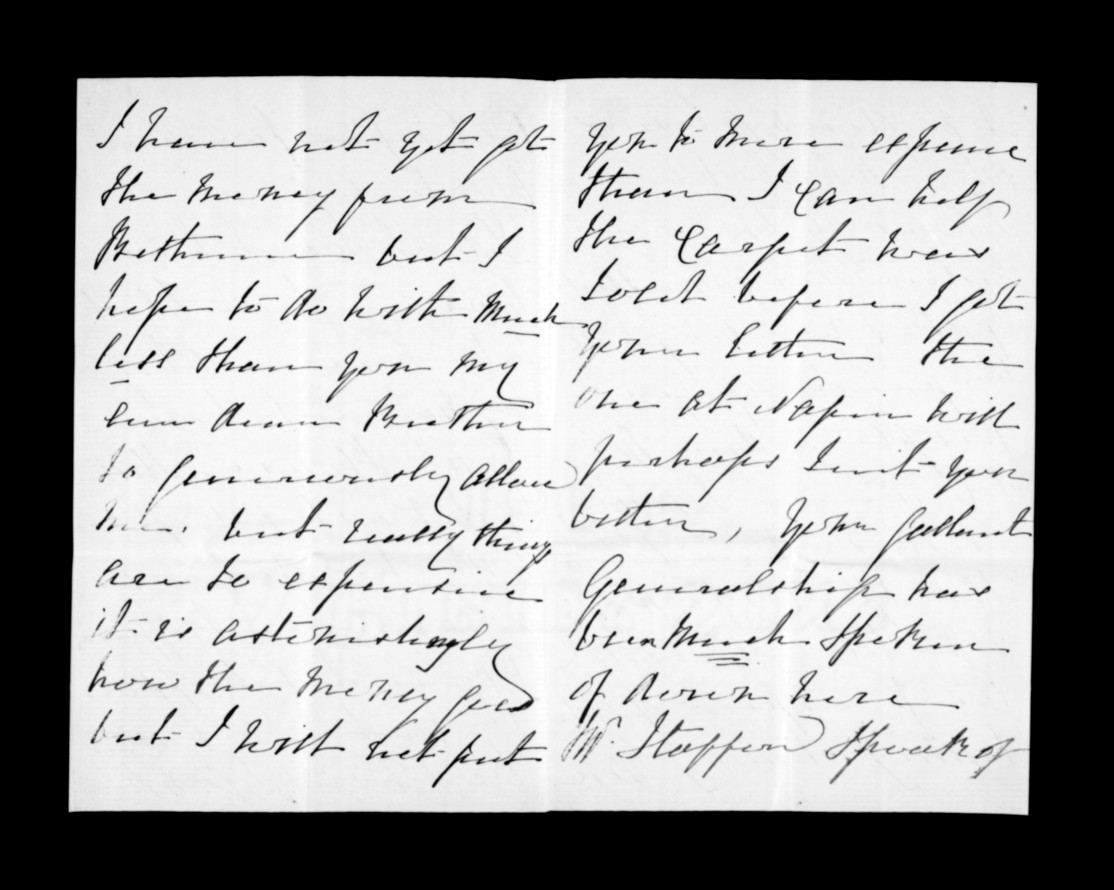 I have not yet got
the money from
Bethune but I
hope to do with much
less than you my
own dear Brother
so generously allow
me. but really things
are so expensive
it is astonishingly
how the money goes
but I will not put
you to more expense
than I can help
the Carpet was
sold before I got
your letter the
one at Napier will
perhaps suit you
better, your gallant
Generalship has
been much spoken
of down here
Mr. Speak of